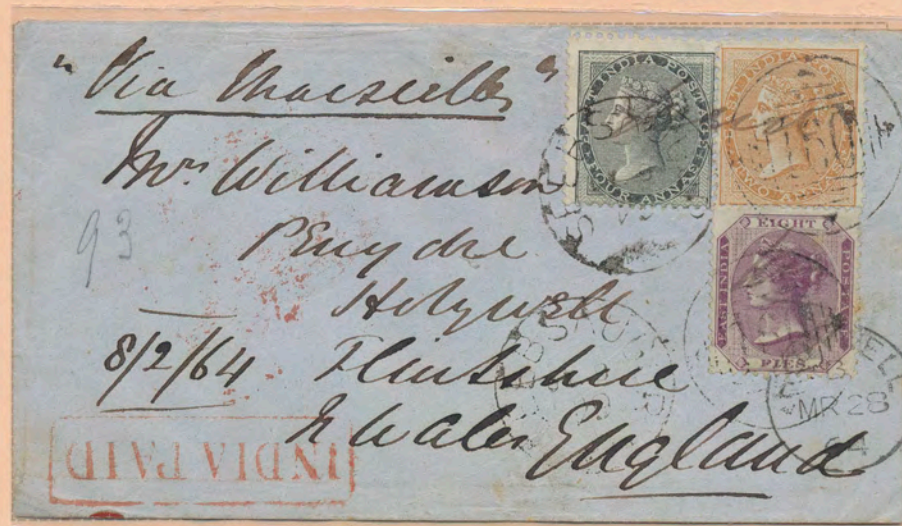 "Via Marseilles"
Mrs Williamson
Penydre
Holywell
Flintshire
N Wales England
8/2/64
93
INDIA PAID
EAST INDIA POSTAGE
FOUR ANNAS
EAST INDIA POSTAGE
TWO ANNAS
EIGHT
EAST INDIA
POSTAGE
PIES
MR 28